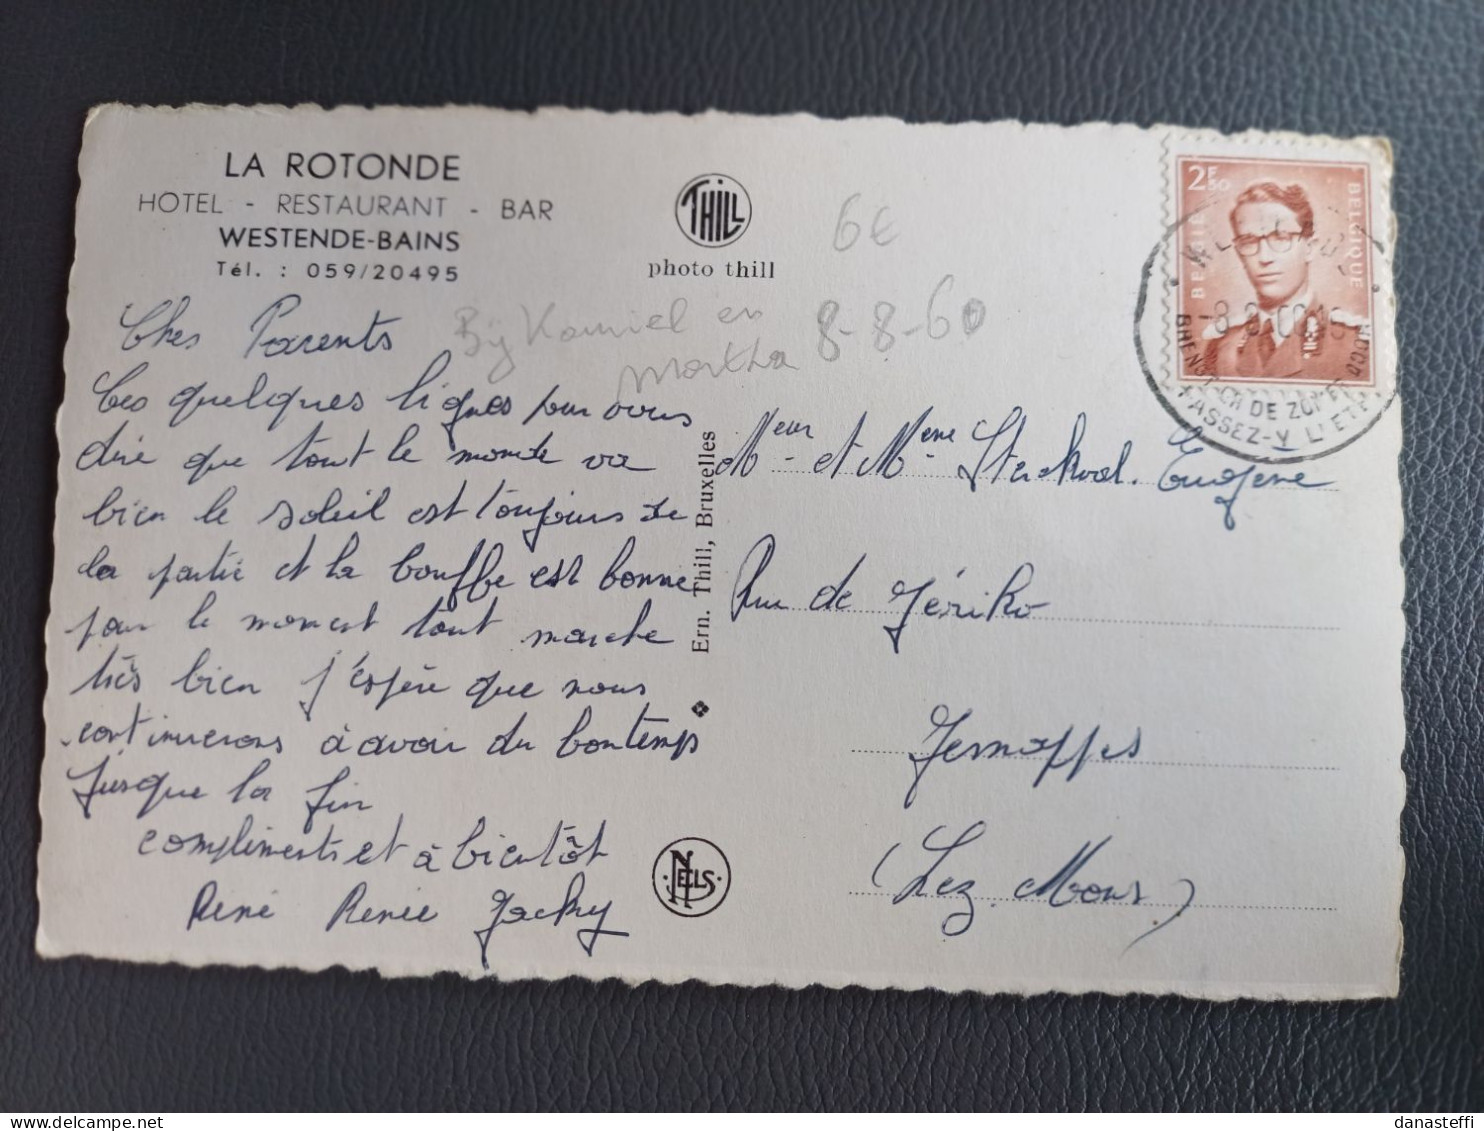 LA ROTONDE
HOTEL - RESTAURANT - BAR
WESTENDE-BAINS
Tél. : 059/20495
THILL
photo thill
6€
Bij Kamiel en
Martha 8-8-60
2F50
BELGIË BELGIQUE
BRENGT ER DE ZOMER DOOR
PASSEZ-Y L'ETE
Chers Parents
Ces quelques lignes pour vous
dire que tout le monde va
bien le soleil est toujours de
la partie et la bouffe est bonne
pour le moment tout marche
très bien j'espère que nous
continuerons à avoir du bontemps
jusque la fin
compliments et à bientôt
René Renée Jacky
Ern. Thill, Bruxelles
NELS
Meur et Mme Eugene
Rue de Jériko
Jemappes
(Lez. Mons)
danasteffi